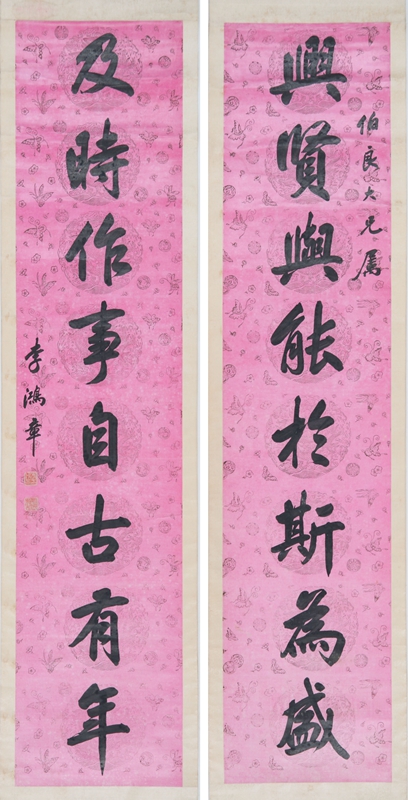 伯良大兄属
興賢與能於斯為盛
及時作事自古有年
李鴻章